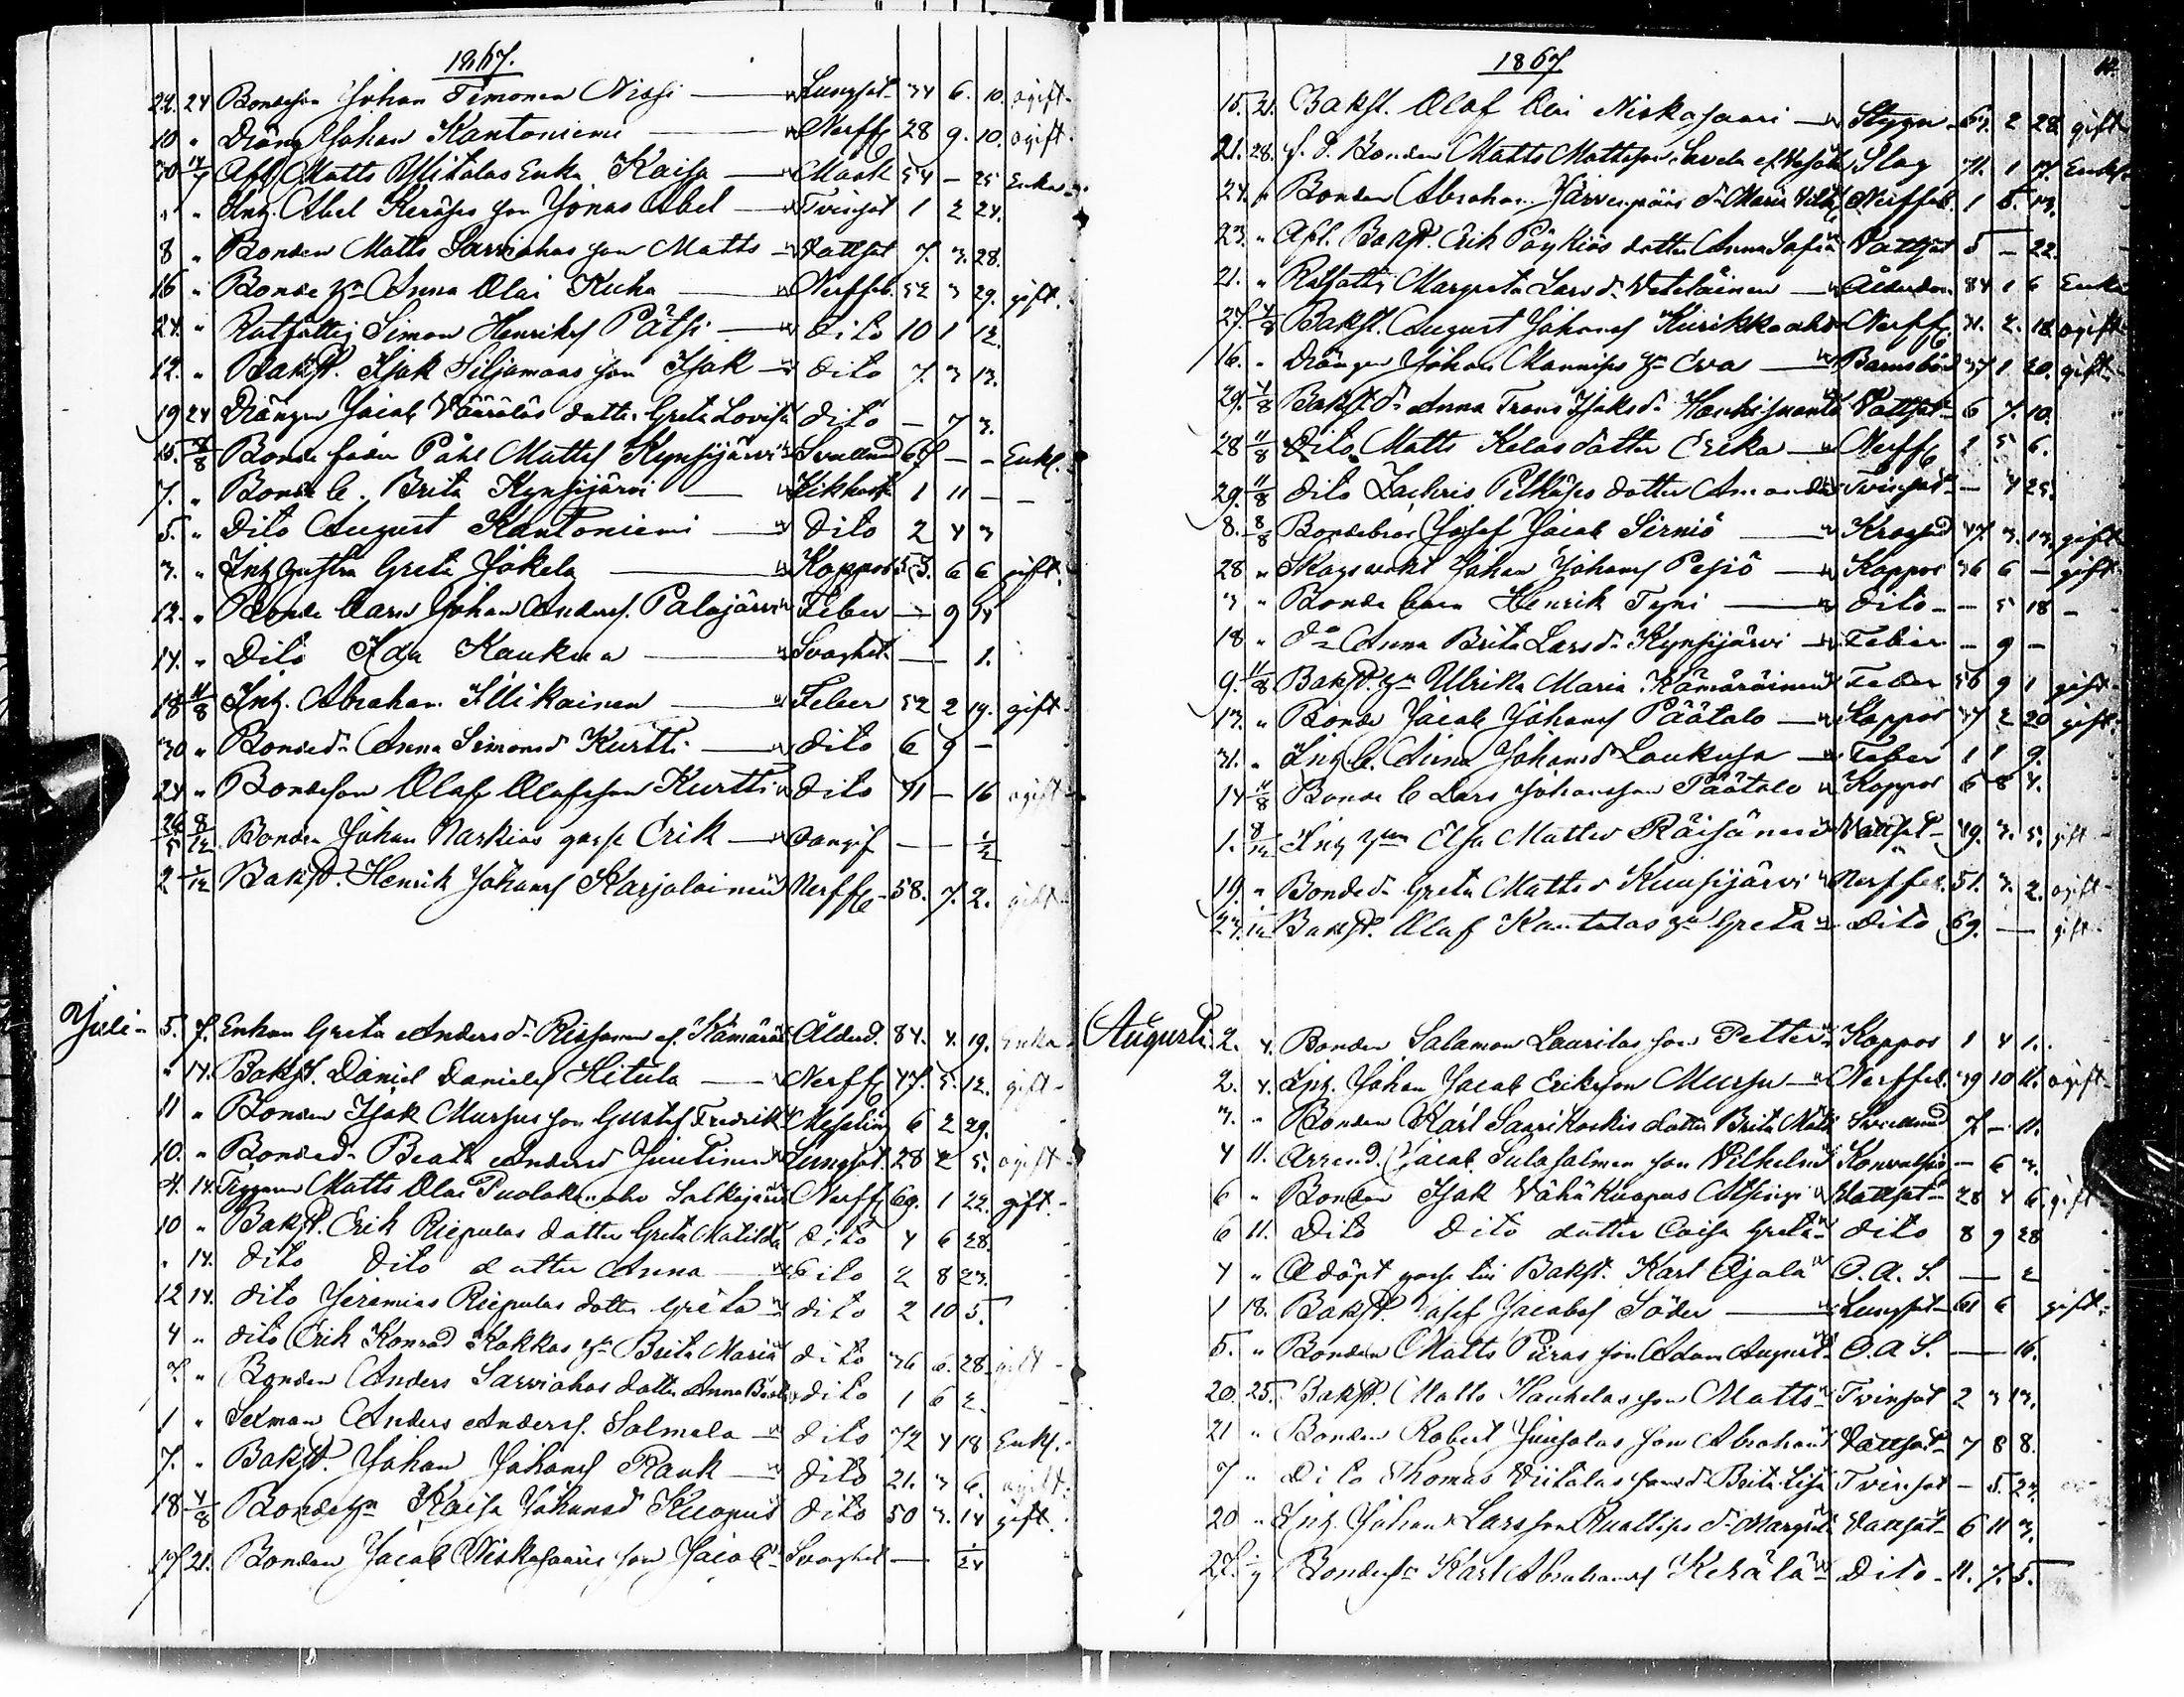 1867.
22. 24 Bondeson Johan Timonen Nissi — Lungsot 34 6. 10. ogift
10 " Dräng Johan Kantoniemi — Nerff 28 9. 10. ogift
30 14/7 Afl. Matts Ylitalos Enka Kaisa — Mask 54 — 25 Enka
" " Inh. Abel Keräjes son Jonas Abel — Tvinsot 1 2 24.
8 " Bonden Matts Sarviahos son Matts — Vattsot 7. 3. 28.
16 " Bonde h:n Anna Olai Kuha — Nerffeb. 52 3 29. gift.
24. " Rotfattig Simon Henriks Pätsi — dito 10 1 12.
12. " Bakst. Isak Siljamaas son Isak — dito 7. 3 13.
19 24 Drängen Jacob Vääräläs dotter Greta Lovisa dito — 7 3.
15. 4/8 Bonde fader Påhl Matts Kynsijärvi Svullnad 67 — — Enkl.
7. " Bonde b. Brita Kynsijärvi — Kikhosta 1 11 —
5. " Dito August Kantoniemi — Dito 2 4 3
3. " Inh hustru Greta Jokela — Koppor 53. 6 6 gift.
12. " Bonde barn Johan Anders. Palojärvi Feber — 9 14
14. " Dito Ida Kaukua — Svaghet — 1.
18 11/8 Inh. Abraham Illikainen — Feber 52 2 19. gift
30 " Bonded. Anna Simonsd. Kurtti — dito 6 9 —
24 " Bondeson Olaf Olofsson Kurtti dito 41 — 16 ogift
26/5 8/12 Bonden Johan Narkios gosse Erik — Oangif — — 1/2
2 1/12 Bakst. Henrik Johans Karjalainen Nerff 58. 7. 2. gift
Juli 5. 7. Enkan Greta Andersd. Rissanen ef. Kämärä Ålderd. 84. 4. 19. Enka
" 14. Bakst. Daniel Daniels Hitula — Nerff 47. 5. 12. gift
11 " Bonden Isak Mursus son Gustaf Fredrik Messling 6 2 29.
10. " Bonded. Beata Andersd. Juutinen Lungsot 28 2 5. ogift
4. 14. Tiggaren Matts Olai Puolakanaho Nerff 69. 1 22. gift.
10 " Bakst. Erik Riepulas dotter Greta Matilda dito 4 6 28.
" 14. dito Dito dotter Anna — dito 2 8 23.
12 14. dito Jeremias Riepulas dotter Greta dito 2 10 5.
4 " dito Erik Konrad Kokkos h. Brita Maria dito 36 6. 28. gift
7. " Bonden Anders Sarviahos dotter Anna dito 1 6 2.
1 " Sexman Anders Anders. Salmela — dito 72 4 18 Enkl.
7. " Bakst. Johan Johans Rauk — dito 21. 3 6. ogift.
18 4/8 Bondeh:n Kaisa Johansd. Kuopus dito 50 3. 14 gift.
19 21. Bonden Jacob Niskasaaris son Jacob Svaghet — 1/24
1867
12.
15. 21. Bakst. Olaf Olai Niskasaari — Stygn 67. 2 28 gift
21. 28. f. d. Bonden Matts Mattsson Savela Slag 71. 1 17. Enkl.
24. " Bonden Abraham Järvenpääs d. Maria Nerffeb. 1 5. 13.
23. " Afl. Bakst. Erik Pöykiös dotter Anna Sofia Vattsot 5 — 22.
21. " Rotfattig Margreta Larsd. Veteläinen — Ålderdom 84 1 6 Enka
27. 4/8 Bakst. August Johans Kurikkaaho Nerff 31. 2. 18 ogift
16. " Drängen Johan h. Eva — Barnsbörd 37 1 20. gift
29. 4/8 Bakst. d. Anna Isaksd. Vattsot 6 7. 10.
28 11/8 Dito Matts Kelas dotter Erika — Nerff 1 5 6.
29. 11/8 dito Zachris dotter Amanda Tvinsot — 4 25.
8. 8/8 Bondebror Josef Jacob Sirniö — 47. 3. 13. gift
28 " Skogsvakt Johan Johans Pesiö — Koppor 36 6 — gift
3 " Bonde barn Henrik Tyni — dito — 5 18 —
18 " d:o Anna Brita Larsd. Kynsijärvi — Feber — 9 —
9. 11/8 Bakst. h. Ulrika Maria Kämäräinen Feber 56 9 1 gift
13. " Bonde Jacob Johans Päätalo — Koppor 37 2 20 gift
31. " Inh. b. Anna Johansd. Laukusa — Feber 1 1 9.
14 11/8 Bonde b Lars Johansson Päätalo Koppor 6 8 4.
1. 8/12 Inh h:n Elsa Mattsd. Räisänen Vattsot 49. 3. 5. gift
19. " Bonded. Greta Mattsd. Kuusijärvi Nerffeb. 51. 3. 2. ogift
24. 1/12 Bakst. Olaf Kantolas h. Greta — Dito 69. — gift
Augusti 2. 4. Bonden Salamon Laurilas son Petter Koppor 1 4 1.
2. 4. Inh. Johan Jacob Eriksson Mursu — Nerffeb. 39 10 11. ogift
3. " Bonden Karl Saarikoskis dotter Brita Svullnad 7 — 11.
4 11. Arrend. Jacob Sulasalmen son Vilhelm Konvulsio — 6 3.
6 " Bonden Isak Vähäkuopus Vattsot 28 4 6. gift
6 11. Dito Dito dotter Caisa Greta dito 8 9 28
4 " Adöpt gosse till Bakst. Karl Ojala O. A. S. — 2
1 18. Bakst. Josef Jacobs Söder — Lungsot 61 6 gift.
5. " Bonden Matts Puras son Adam August O. A S. — 16.
20. 25. Bakst. Matts Haukelas son Matts Tvinsot 2 3 13.
21 " Bonden Robert Juujolas son Abraham Vattsot 7 8 8.
7 " Dito Thomas Viitalas Brita Lisa Tvinsot — 5. 27.
20 " Inh. Johan Larsson d. Margret Vattsot 6 11 3.
27. 1/9 Bondes. Karl Abrahams Kerälä Dito 11. 7. 5.